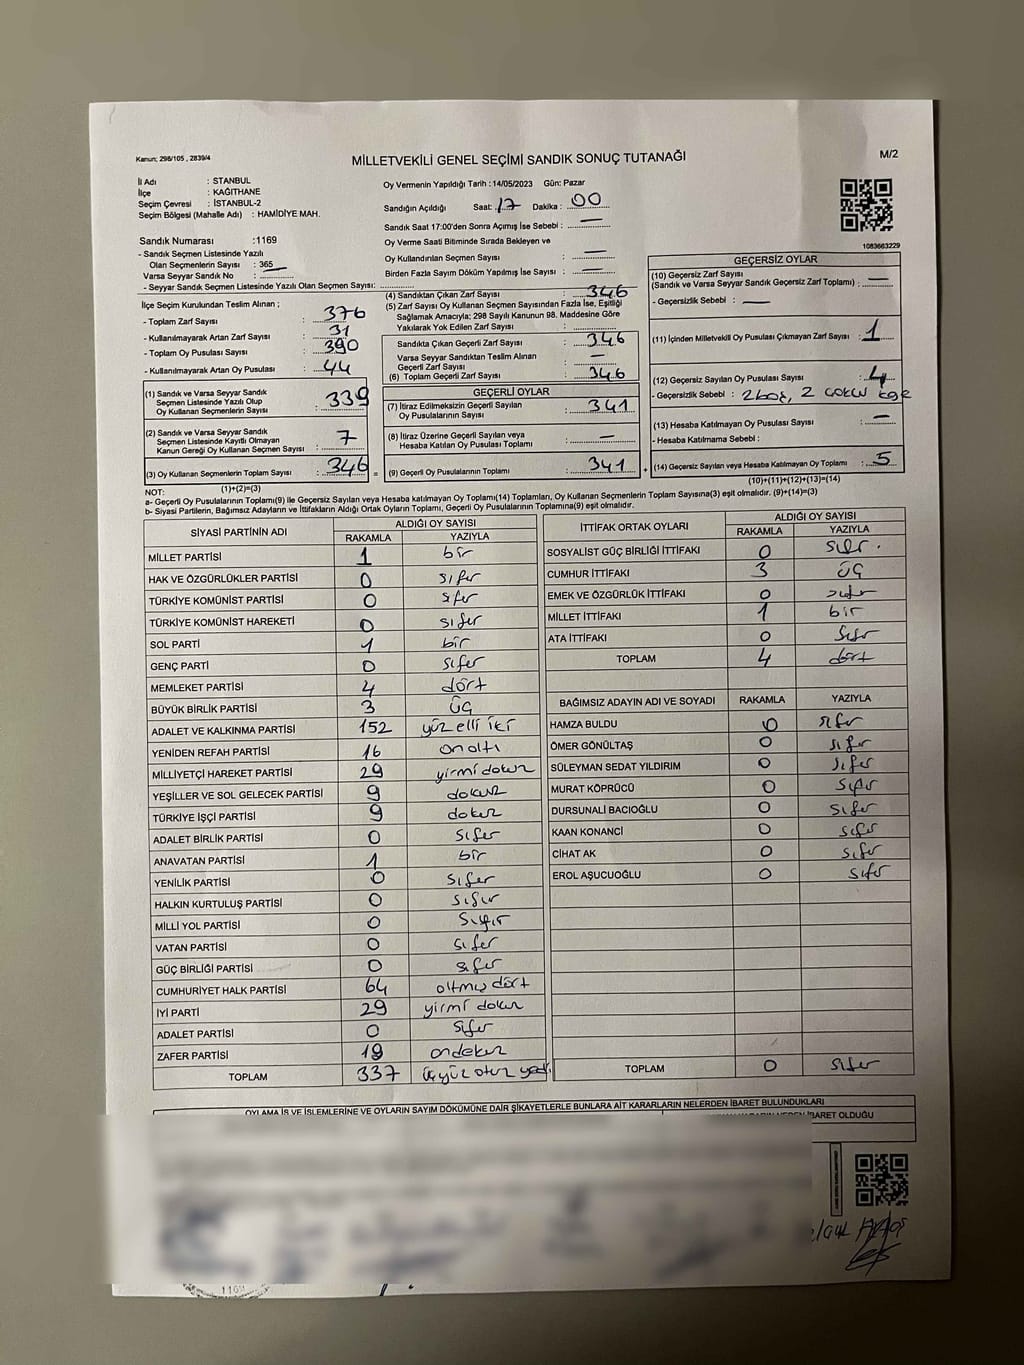 Kanun; 298/105 , 2839/4
MİLLETVEKİLİ GENEL SEÇİMİ SANDIK SONUÇ TUTANAĞI
M/2
İl Adı : İSTANBUL
İlçe : KAĞITHANE
Seçim Çevresi : İSTANBUL-2
Seçim Bölgesi (Mahalle Adı) : HAMİDİYE MAH.
Oy Vermenin Yapıldığı Tarih : 14/05/2023 Gün: Pazar
Sandığın Açıldığı Saat: 17 Dakika : 00
Sandık Saat 17:00'den Sonra Açımış İse Sebebi : —
Oy Verme Saati Bitiminde Sırada Bekleyen ve
Oy Kullandırılan Seçmen Sayısı : —
Birden Fazla Sayım Döküm Yapılmış İse Sayısı : —
1083663229
Sandık Numarası :1169
- Sandık Seçmen Listesinde Yazılı
Olan Seçmenlerin Sayısı : 365
Varsa Seyyar Sandık No :
- Seyyar Sandık Seçmen Listesinde Yazılı Olan Seçmen Sayısı:
İlçe Seçim Kurulundan Teslim Alınan ;
- Toplam Zarf Sayısı : 376
- Kullanılmayarak Artan Zarf Sayısı : 31
- Toplam Oy Pusulası Sayısı : 390
- Kullanılmayarak Artan Oy Pusulası : 44
(1) Sandık ve Varsa Seyyar Sandık
Seçmen Listesinde Yazılı Olup
Oy Kullanan Seçmenlerin Sayısı : 339
(2) Sandık ve Varsa Seyyar Sandık
Seçmen Listesinde Kayıtlı Olmayan
Kanun Gereği Oy Kullanan Seçmen Sayısı : 7
(3) Oy Kullanan Seçmenlerin Toplam Sayısı : 346
(1)+(2)=(3)
(4) Sandıktan Çıkan Zarf Sayısı : 346
(5) Zarf Sayısı Oy Kullanan Seçmen Sayısından Fazla İse, Eşitliği
Sağlamak Amacıyla; 298 Sayılı Kanunun 98. Maddesine Göre
Yakılarak Yok Edilen Zarf Sayısı :
Sandıkta Çıkan Geçerli Zarf Sayısı : 346
Varsa Seyyar Sandıktan Teslim Alınan
Geçerli Zarf Sayısı : —
(6) Toplam Geçerli Zarf Sayısı : 346
GEÇERLİ OYLAR
(7) İtiraz Edilmeksizin Geçerli Sayılan
Oy Pusulalarının Sayısı : 341
(8) İtiraz Üzerine Geçerli Sayılan veya
Hesaba Katılan Oy Pusulası Toplamı : —
(9) Geçerli Oy Pusulalarının Toplamı : 341
GEÇERSİZ OYLAR
(10) Geçersiz Zarf Sayısı
(Sandık ve Varsa Seyyar Sandık Geçersiz Zarf Toplamı) : —
- Geçersizlik Sebebi : —
(11) İçinden Milletvekili Oy Pusulası Çıkmayan Zarf Sayısı : 1
(12) Geçersiz Sayılan Oy Pusulası Sayısı : 4
- Geçersizlik Sebebi : 2 boş, 2
(13) Hesaba Katılmayan Oy Pusulası Sayısı : —
- Hesaba Katılmama Sebebi :
(14) Geçersiz Sayılan veya Hesaba Katılmayan Oy Toplamı : 5
(10)+(11)+(12)+(13)=(14)
NOT:
a- Geçerli Oy Pusulalarının Toplamı(9) ile Geçersiz Sayılan veya Hesaba katılmayan Oy Toplamı(14) Toplamları, Oy Kullanan Seçmenlerin Toplam Sayısına(3) eşit olmalıdır. (9)+(14)=(3)
b- Siyasi Partilerin, Bağımsız Adayların ve İttifakların Aldığı Ortak Oyların Toplamı, Geçerli Oy Pusulalarının Toplamına(9) eşit olmalıdır.
SİYASİ PARTİNİN ADI ALDIĞI OY SAYISI
RAKAMLA YAZIYLA
MİLLET PARTİSİ 1 bir
HAK VE ÖZGÜRLÜKLER PARTİSİ 0 sıfır
TÜRKİYE KOMÜNİST PARTİSİ 0 sıfır
TÜRKİYE KOMÜNİST HAREKETİ 0 sıfır
SOL PARTİ 1 bir
GENÇ PARTİ 0 sıfır
MEMLEKET PARTİSİ 4 dört
BÜYÜK BİRLİK PARTİSİ 3 üç
ADALET VE KALKINMA PARTİSİ 152 yüz elli iki
YENİDEN REFAH PARTİSİ 16 onaltı
MİLLİYETÇİ HAREKET PARTİSİ 29 yirmi dokuz
YEŞİLLER VE SOL GELECEK PARTİSİ 9 dokuz
TÜRKİYE İŞÇİ PARTİSİ 9 dokuz
ADALET BİRLİK PARTİSİ 0 sıfır
ANAVATAN PARTİSİ 1 bir
YENİLİK PARTİSİ 0 sıfır
HALKIN KURTULUŞ PARTİSİ 0 sıfır
MİLLİ YOL PARTİSİ 0 sıfır
VATAN PARTİSİ 0 sıfır
GÜÇ BİRLİĞİ PARTİSİ 0 sıfır
CUMHURİYET HALK PARTİSİ 64 altmış dört
İYİ PARTİ 29 yirmi dokuz
ADALET PARTİSİ 0 sıfır
ZAFER PARTİSİ 19 ondokuz
TOPLAM 337 üçyüz otuz yedi
İTTİFAK ORTAK OYLARI ALDIĞI OY SAYISI
RAKAMLA YAZIYLA
SOSYALİST GÜÇ BİRLİĞİ İTTİFAKI 0 sıfır.
CUMHUR İTTİFAKI 3 üç
EMEK VE ÖZGÜRLÜK İTTİFAKI 0 sıfır
MİLLET İTTİFAKI 1 bir
ATA İTTİFAKI 0 sıfır
TOPLAM 4 dört
BAĞIMSIZ ADAYIN ADI VE SOYADI RAKAMLA YAZIYLA
HAMZA BULDU 0 sıfır
ÖMER GÖNÜLTAŞ 0 sıfır
SÜLEYMAN SEDAT YILDIRIM 0 sıfır
MURAT KÖPRÜCÜ 0 sıfır
DURSUNALİ BACIOĞLU 0 sıfır
KAAN KONANCİ 0 sıfır
CİHAT AK 0 sıfır
EROL AŞUCUOĞLU 0 sıfır
TOPLAM 0 sıfır
OYLAMA İŞ VE İŞLEMLERİNE VE OYLARIN SAYIM DÖKÜMÜNE DAİR ŞİKAYETLERLE BUNLARA AİT KARARLARIN NELERDEN İBARET BULUNDUKLARI
İBARET OLDUĞU
1169